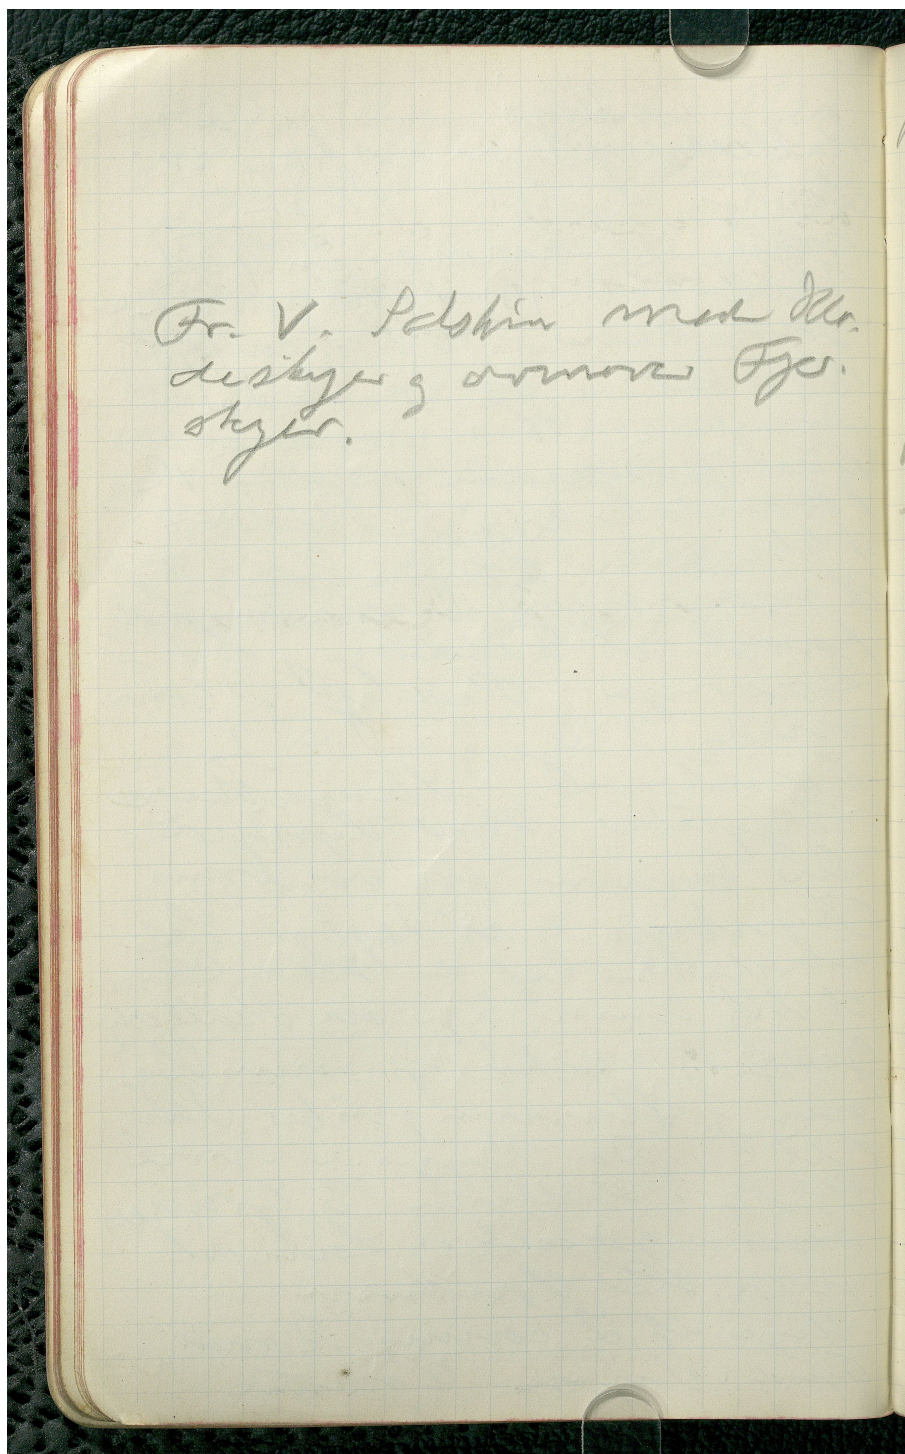 Fr. V. Solskin med Klo-
deskyer og ovenover Fjer-
skyer.